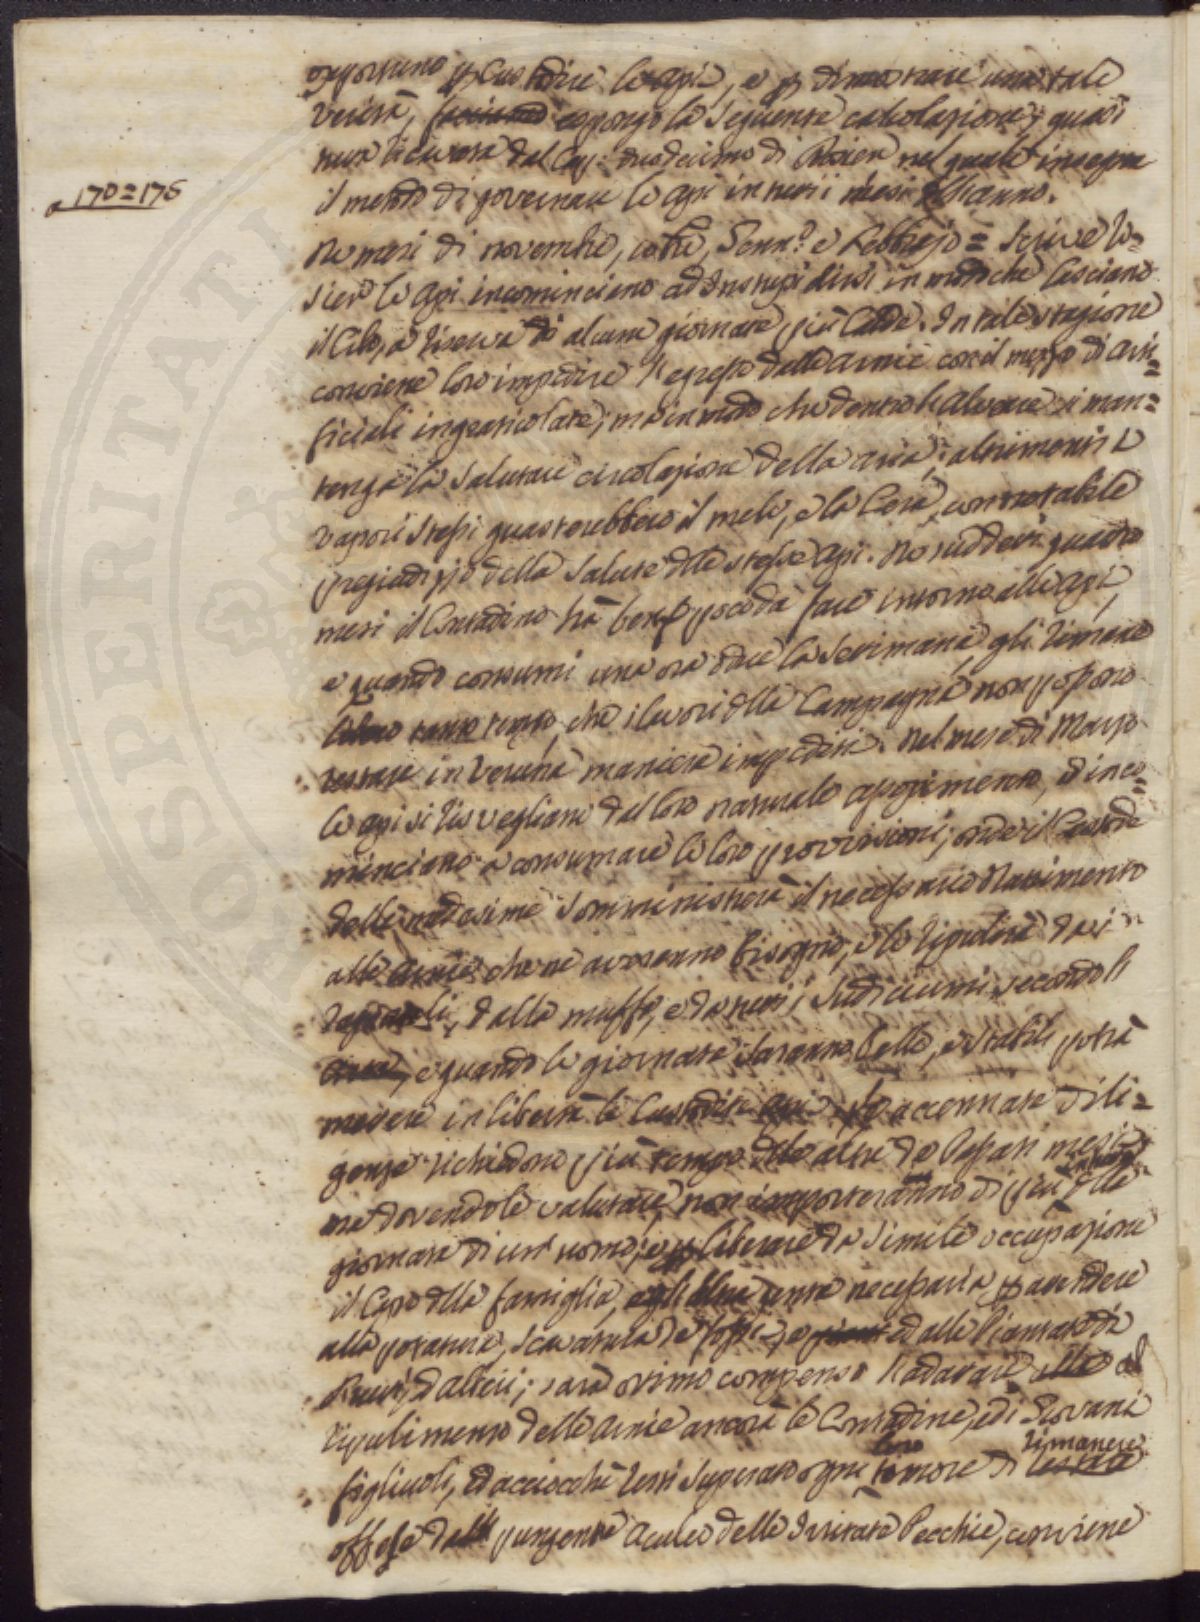 opportuno p custodire le api, e p dimostrare una tale
verità, espongo la seguente calcolazione, quasi
tutta ricavata dal Cap: duodecimo di Rozier nel quale insegna
a 170=176
il metodo di governare le api in tutti i mesi dell'anno.
Ne mesi di novembre, Xbre, Genn.o e Febbrajo = scrive Ro=
sier le api incominciano ad instupidirsi in modo che lasciano
il cibo, a riserva di alcune giornate più calde. In tale stagione
conviene loro impedire l'egresso dalle arnie con il mezzo di arti=
ficiali ingraticolate; ma in modo che dentro l'alveare si man=
tenga la salutare circolazione della aria; altrimenti i
vapori stessi guasterebbero il mele, e la Cera, con notabile
pregiudizio della salute delle stesse api. Ne suddetti quattro
mesi il Contadino ha ben poco da fare intorno alle api,
e quando consumi una ora due la settimana, gli rimane
libero tanto tempo, che i lavori della Campagna non possono
restare in veruna maniera impediti. Nel mese di Marzo
le api si risvegliano dal loro naturale assopimento, ed inco=
minciano a consumare le loro provvisioni; onde il Custode
delle medesime somministrerà il necessario nutrimento
alle arnie che ne avranno bisogno, e le ripulirà dai
dalla muffa, e da tutti i sudiciumi, secondo li
e quando le giornate saranno belle, e stabili potrà
mettere in libertà le custodite api. Le accennate dili=
genze richiedono più tempo delle altre de passati mesi,
ma dovendole valutare, non importeranno di più delle
giornata di un uomo; e p liberare da simile occupazione
il Capo della famiglia, necessaria p attendere
alla potatura, scavatura de fossi, ed alle Piantate di
ed alberi; sarà ottimo compenso l'adattare al
ripulimento delle arnie ancora le Contadine, ed i Giovani
loro rimanere
figliuoli, ed acciocchè resti superato ogni timore di restare
offese dal pungente aculeo delle irritate Pecchie, conviene